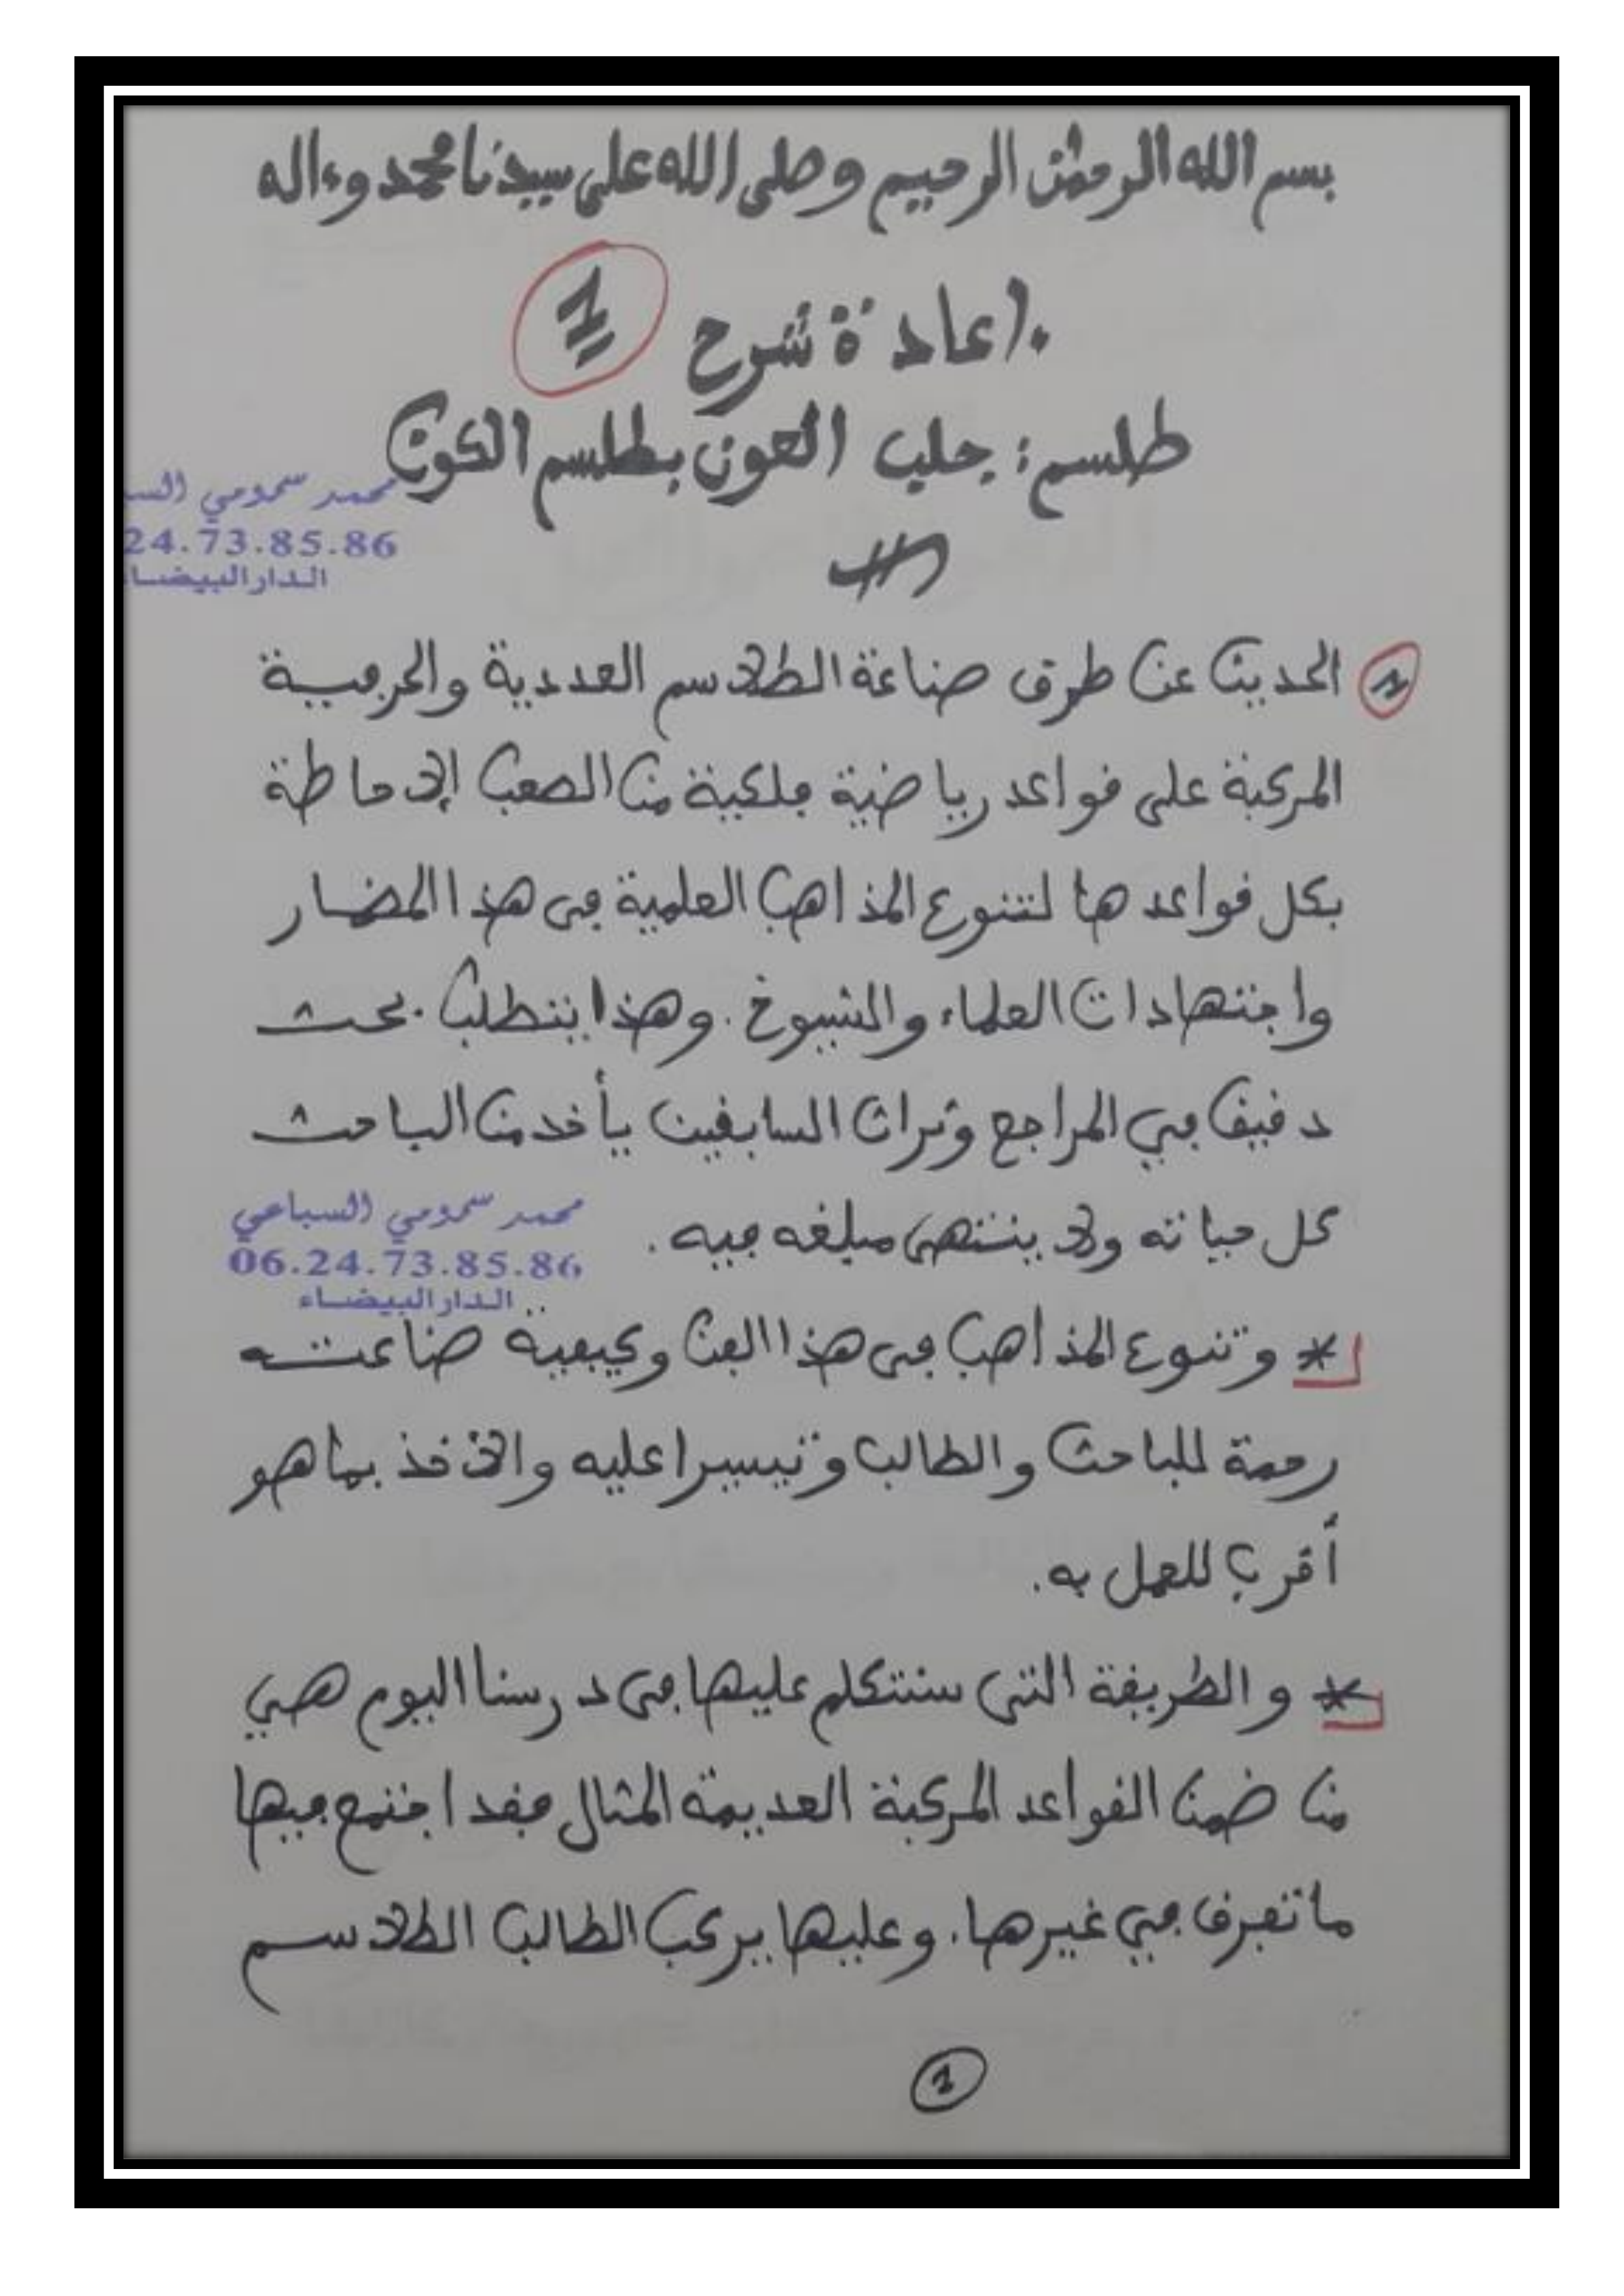 بسم الله الرحمٰن الرحيم وصلى الله على سيدنا محمد وءاله
إعادة شرح 1
طلسم: جلب العون بطلسم الكون
محمد سمومي السبا
24.73.85.86
الدار البيضاء
1 الحديث عن طرق صناعة الطلاسم العددية والحرفية
المركبة على قواعد رياضية فلكية من الصعب الإحاطة
بكل قواعدها لتنوع المذاهب العلمية في هذا المضمار
واجتهادات العلماء والشيوخ. وهذا يتطلب بحث
دقيق في المراجع وتراث السابقين يأخد من الباحث
كل حياته ولا ينتهى مبلغه فيه.
محمد سمومي السباعي
06.24.73.85.86
الدار البيضاء
* وتنوع المذاهب في هذا الفن وكيفية صناعته
رحمة للباحث والطالب وتيسيرا عليه والأخذ بما هو
أقرب للعمل به.
* والطريقة التي سنتكلم عليها في درسنا اليوم هي
من ضمن القواعد المركبة العديمة المثال فقد اجتمع فيها
ما تفرق في غيرها. وعليها يركب الطالب الطلاسم
1